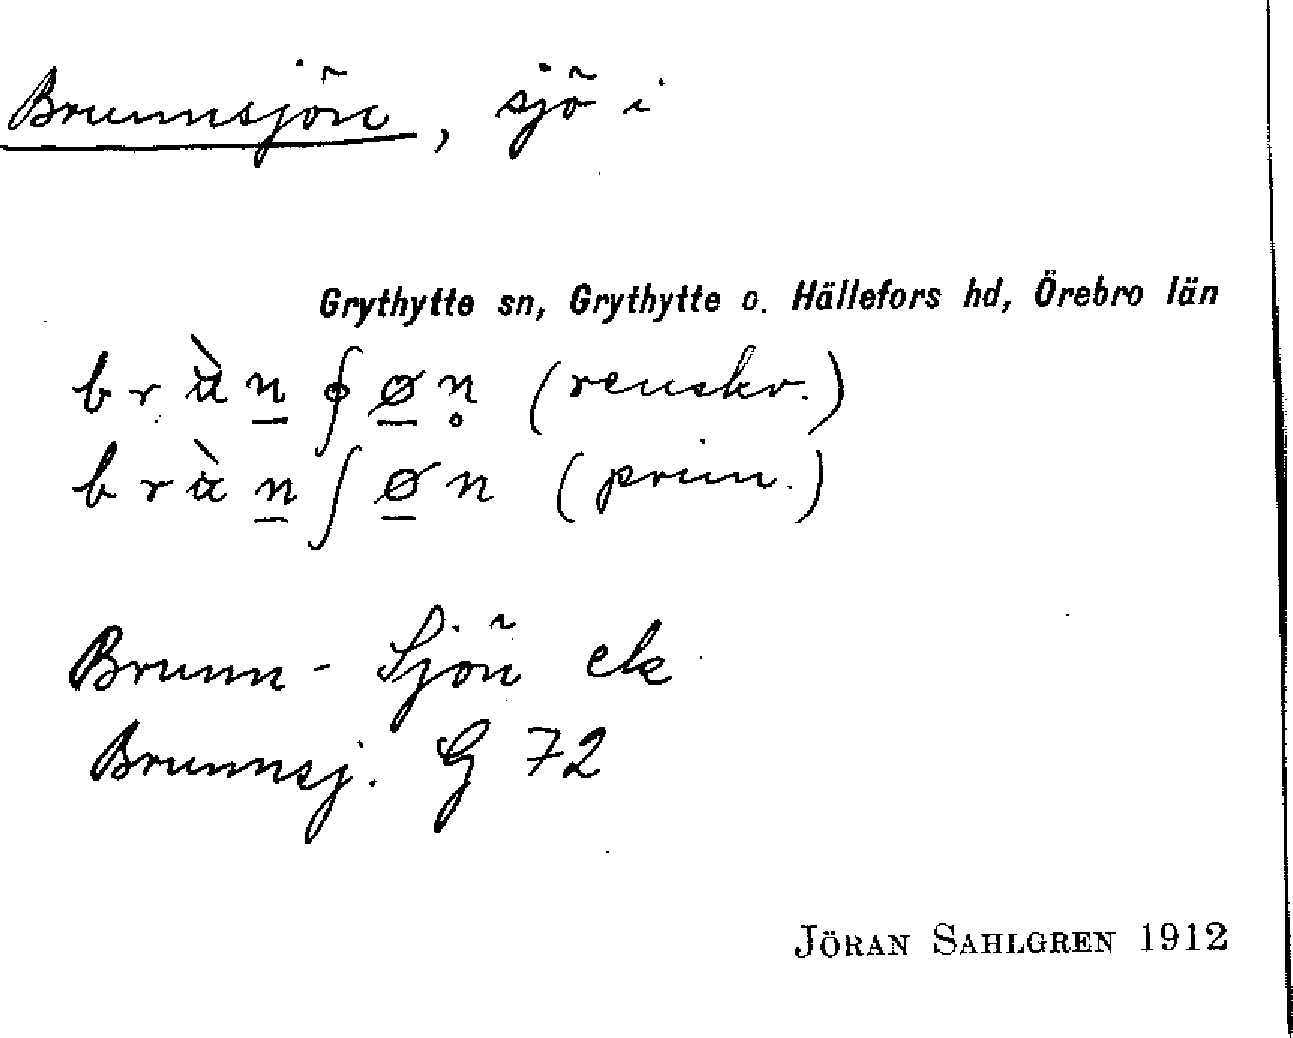 Brunnsjön, sjö i
Grythytte sn, Grythytte o. Hällefors hd, Örebro län
(renskr.)
(prim.)
Brunn-Sjön ek
Brunnsj. G 72
JÖRAN SAHLGREN 1912